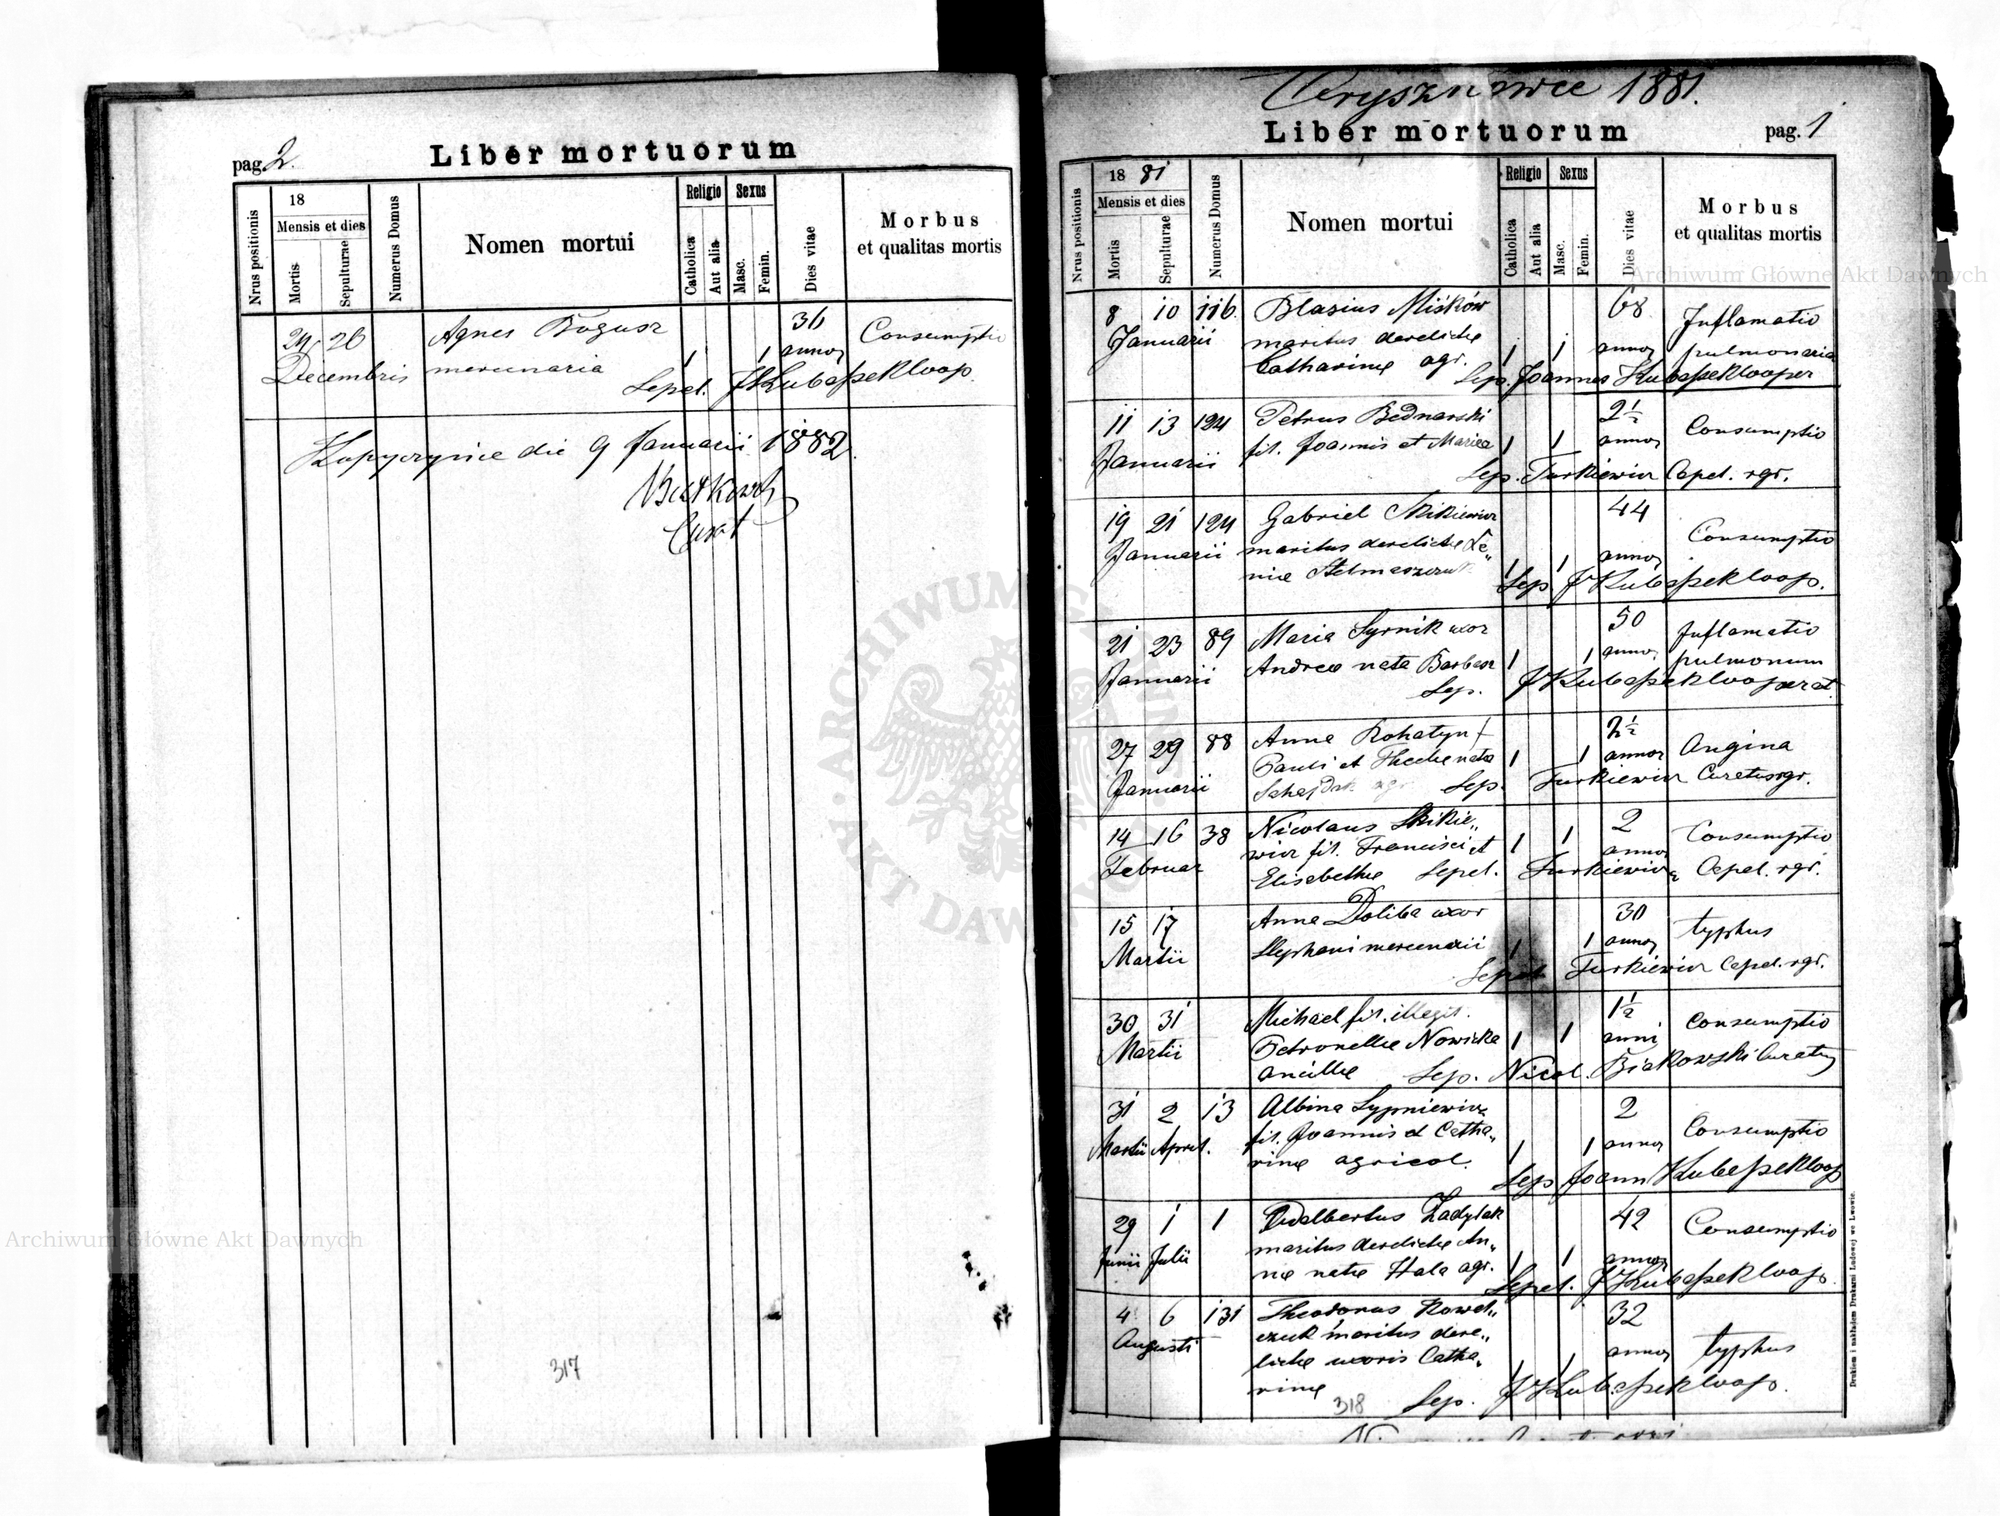 pag. 2.
Liber mortuorum
Nrus positionis
18
Mensis et dies
Mortis
Sepulturae
Numerus Domus
Nomen mortui
Religio
Catholica
Aut alia
Sexus
Masc.
Femin.
Dies vitae
Morbus
et qualitas mortis
24 26 Agnes Bogusz 36 Consumptio
Decembris mercenaria 1 1 annor
Sepel. J Kubassek loop.
Kopyczynce die 9 Januarii 1882.
Curat
317
1881.
Liber mortuorum
pag. 1
Nrus positionis
18 81
Mensis et dies
Mortis
Sepulturae
Numerus Domus
Nomen mortui
Religio
Catholica
Aut alia
Sexus
Masc.
Femin.
Dies vitae
Morbus
et qualitas mortis
8 10 116. Blasius Miśków 68 Inflamatio
Januarii maritus derelictae 1 1 annor pulmonaria
Catharinae agr. Sep. Joannes
11 13 124 Petrus Bednarski 2½ Consumptio
Januarii fil. Joannis et Mariae 1 1 annor
Sep. Turkiewicz Capel. rgr.
19 21 124 Gabriel 44 Consumptio
Januarii maritus derelictae Xe„ 1 1 annor
niae
Sep J
21 23 89 Maria Syrnik uxor 50 Inflamatio
Januarii Andreae nata 1 1 annor. pulmonum
Sep. J
27 29 88 Anna Rohatyn f 2½ Angina
Januarii Pauli et Theclae nata 1 1 annor
Sep. Turkiewicz Curatus rgr.
14 16 38 Nicolaus Skikie„ 2 Consumptio
Februar wicz fil. Francisci et 1 1 annor
Elisabethae Sepel. Turkiewicz Capel. rgr.
15 17 Anna Doliba uxor 30 typhus
Martii Stephani mercenarii 1 1 annor
Sepel. Turkiewicz Capel. rgr.
30 31 Michael fil. illegit. 1½ Consumptio
Martii Petronellae Nowicka 1 1 anni
ancillae Sep. Nicol. Curatus
31 2 13 Albina Sypniewicz 2 Consumptio
Martii Aprel. fil. Joannis et Catha„ 1 1 annor
rinae agricol. Sep Joann
29 1 1 Adalbertus Zadylak 42 Consumptio
Junii Julii maritus derelictae An„ 1 1 annor
nae natae Hala agr. Sepel. J
4 6 131 Theodorus Kowal„ 32 typhus
Augusti czuk maritus dere„ 1 1 annor
lictae uxoris Catha„
rinae Sep. J
318
Drukiem i nakładem Drukarni Ludowej we Lwowie.
Archiwum Główne Akt Dawnych
Archiwum Główne Akt Dawnych
ARCHIWUM GŁÓWNE · AKT DAWNYCH ·